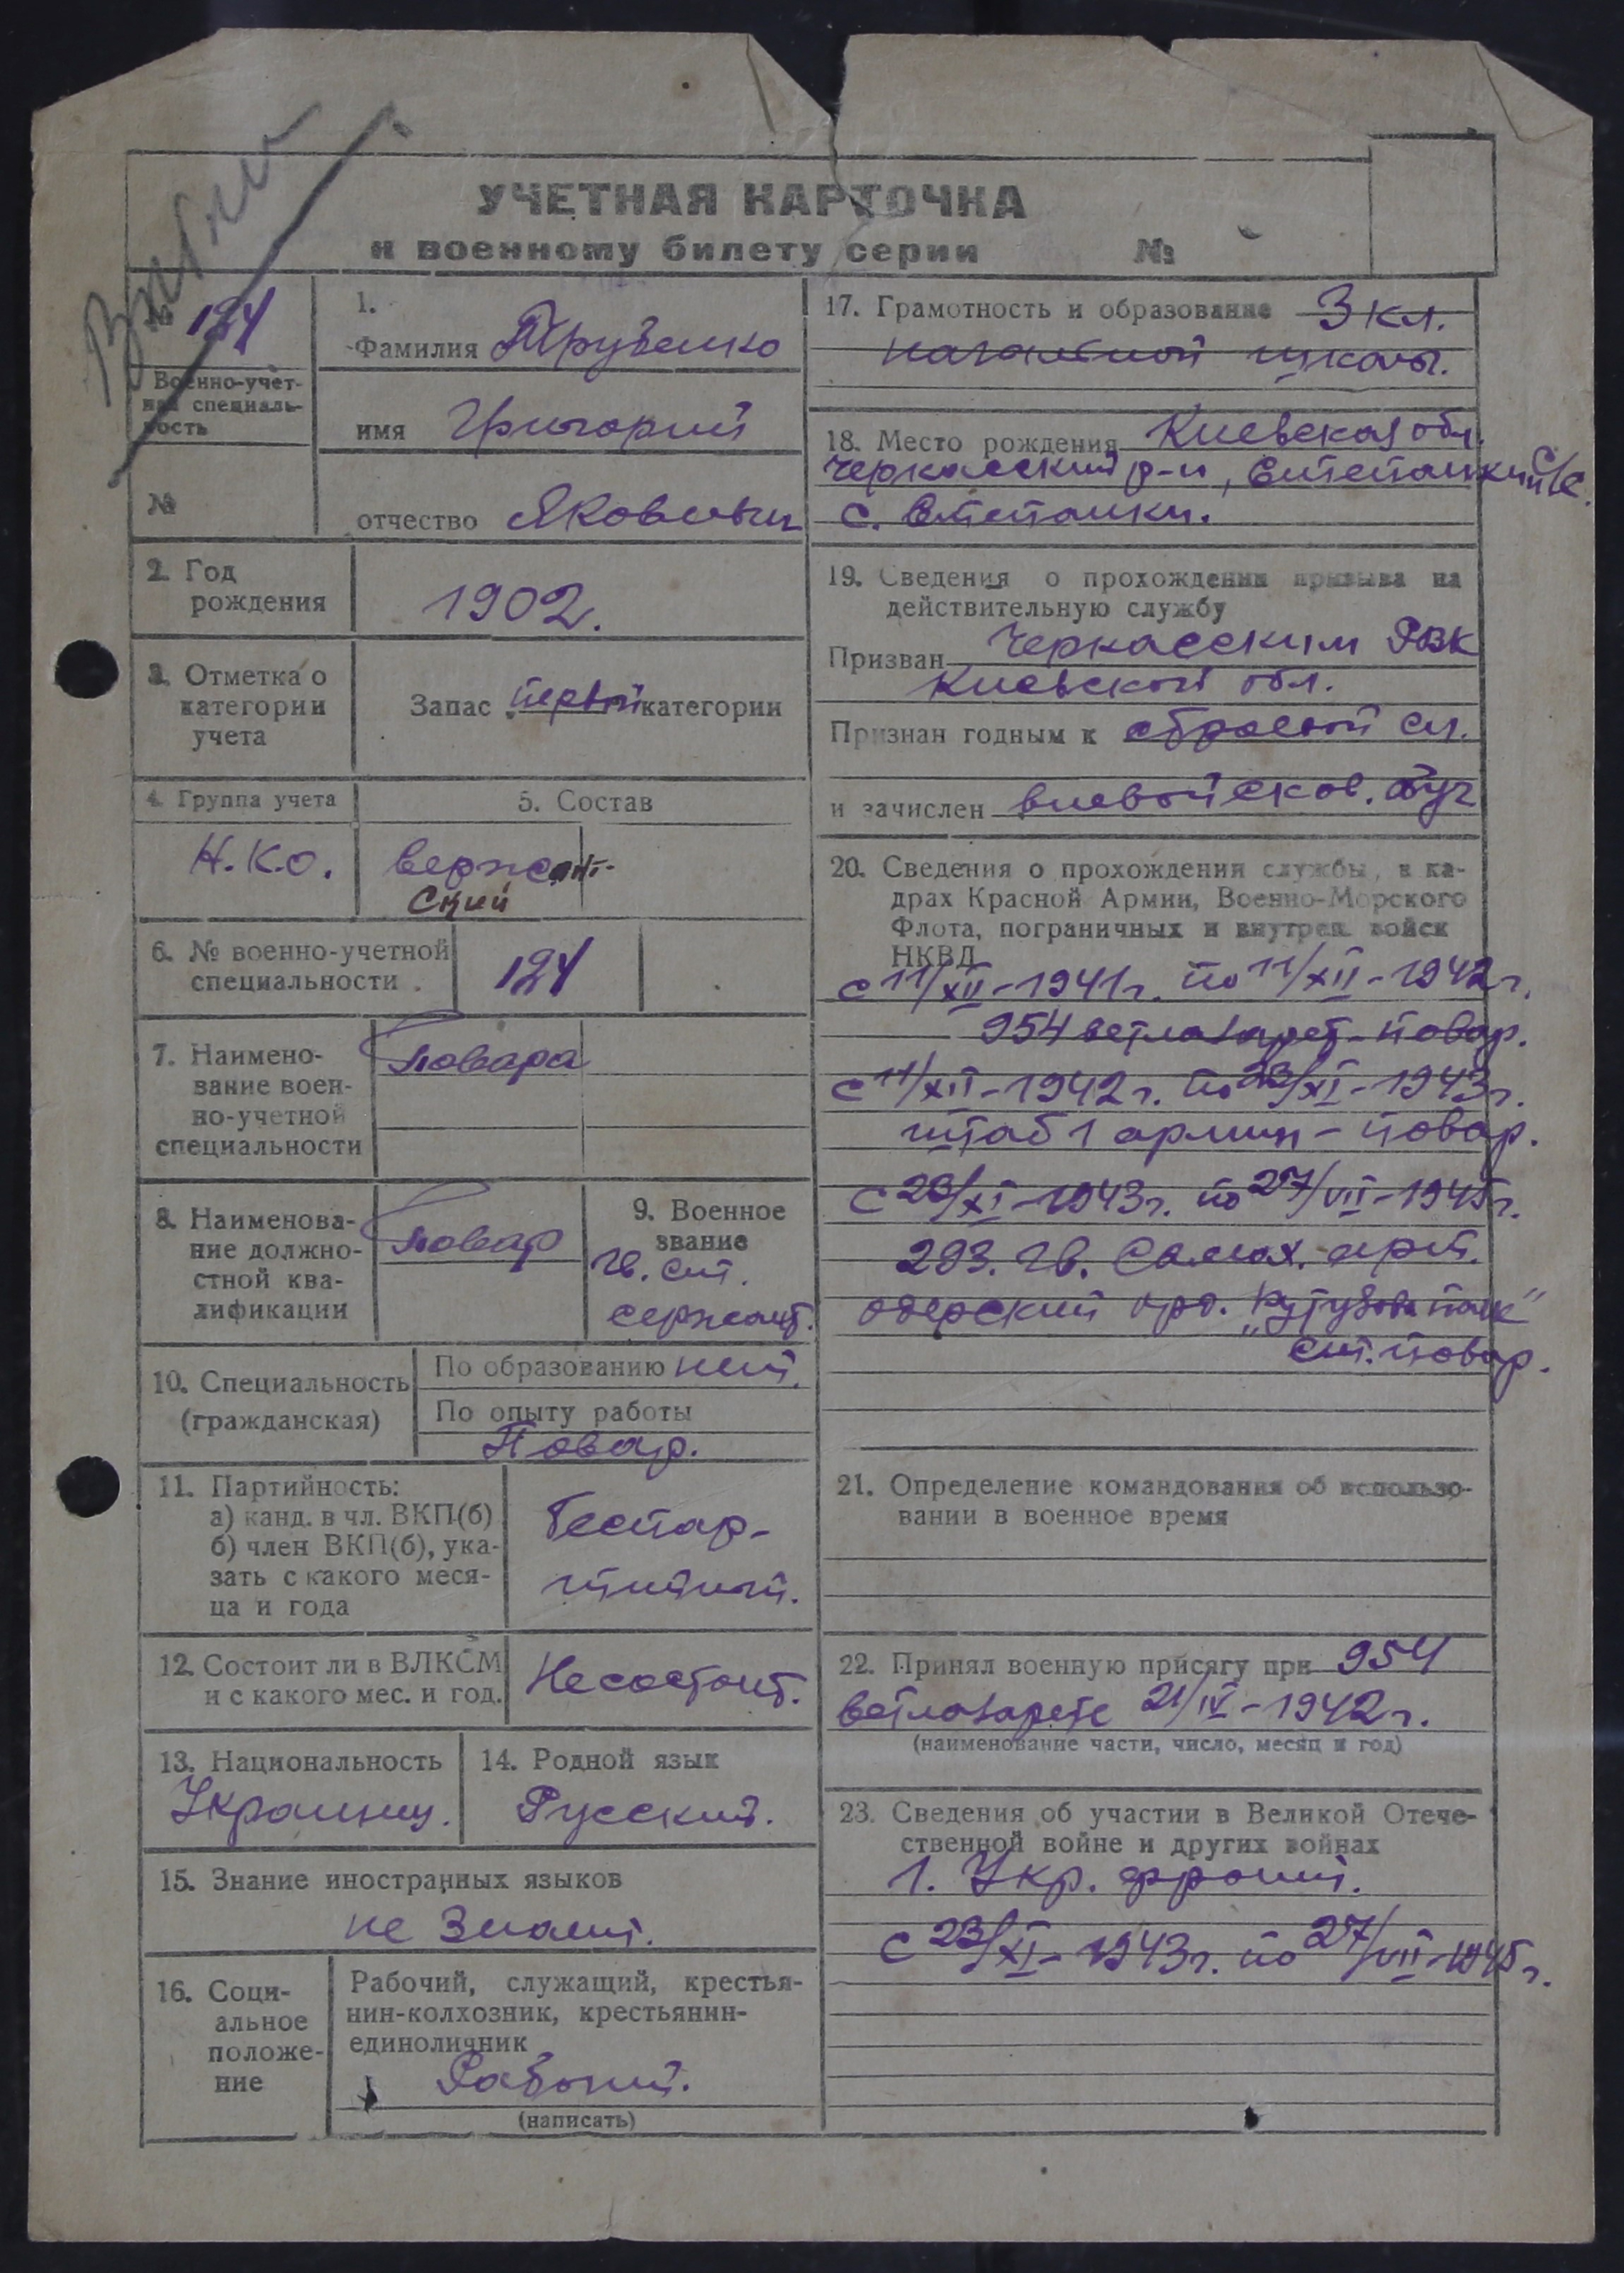 УЧЕТНАЯ КАРТОЧКА
к военному билету серии №
№ 124
Военно-учет-
ная специаль-
ность
№
1.
Фамилия Трубенко
имя Григорий
отчество Яковлевич
2. Год
рождения
1902.
3. Отметка о
категории
учета
Запас первой категории
4. Группа учета
Н.К.О.
5. Состав
сержант-
ский
6. № военно-учетной
специальности
124
7. Наимено-
вание воен-
но-учетной
специальности
Повара
8. Наименова-
ние должно-
стной ква-
лификации
Повар
9. Военное
звание
гв. ст.
сержант.
10. Специальность
(гражданская)
По образованию нет.
По опыту работы
Повар.
11. Партийность:
а) канд. в чл. ВКП(б)
б) член ВКП(б), ука-
зать с какого меся-
ца и года
Беспар-
тийный.
12. Состоит ли в ВЛКСМ
и с какого мес. и год.
Не состоит.
13. Национальность
Украинец.
14. Родной язык
Русский.
15. Знание иностранных языков
не знает.
16. Соци-
альное
положе-
ние
Рабочий, служащий, крестья-
нин-колхозник, крестьянин-
единоличник
Рабочий.
(написать)
17. Грамотность и образование 3 кл.
начальной школы.
18. Место рождения Киевская обл.
Черкасский р-н, Степанкий с/с.
с. Степанки.
19. Сведения о прохождении призыва на
действительную службу
Призван Черкасским РВК
Киевской обл.
Признан годным к строевой сл.
и зачислен
20. Сведения о прохождении службы, в ка-
драх Красной Армии, Военно-Морского
Флота, пограничных и внутрен. войск
НКВД
с 11/XII-1941г. по 11/XII-1942г.
954 ветлазарет - повар.
с 11/XII-1942г. по 23/XI-1943г.
штаб 1 армии - повар.
с 23/XI-1943г. по 27/VII-1945г.
293. гв. Самох. арт.
одерский орд. "Кутузова полк"
ст. повар.
21. Определение командования об использо-
вании в военное время
22. Принял военную присягу при 954
ветлазарете 21/IV-1942г.
(наименование части, число, месяц и год)
23. Сведения об участии в Великой Отече-
ственной войне и других войнах
1. Укр. фронт.
с 23/XI-1943г. по 27/VII-1945г.